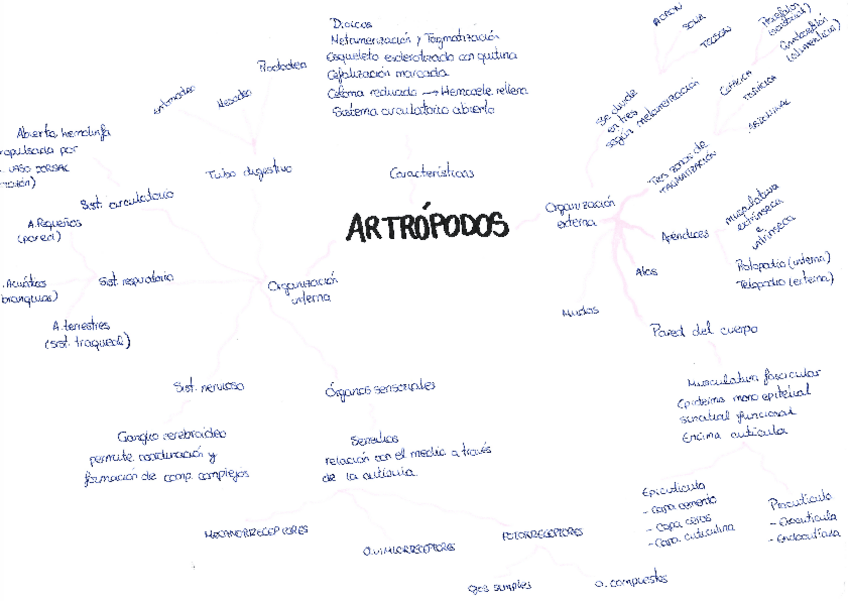 Dioicos
Metamerización y Tagmatización
Esqueleto esclerotizado con quitina
Cefalización marcada
Celoma reducido → Hemocele rellena
Sistema circulatorio abierto
Características
ARTRÓPODOS
Proctodeo
Mesodeo
Estomodeo
Tubo digestivo
Abierta hemolinfa
propulsada por
VASO DORSAL
Sist. circulatorio
A. Pequeños
(pared)
A. Acuáticos
(branquias)
Sist respiratorio
A. terrestres
(sist. traqueal)
Organización
interna
Sist. nervioso
Ganglio cerebroideo
permite coordinación y
formación de comp. complejos
Órganos sensoriales
Sensilias
relación con el medio a través
de la cutícula
MECANORRECEPTORES
QUIMIORRECEPTORES
FOTORRECEPTORES
Ojos simples
O. compuestos
Organización
externa
Se divide
en tres
según metamerización
ACRON
SOMA
TELSON
Tres zonas de
TAGMATIZACIÓN
CEFÁLICA
TORÁCICA
ABDOMINAL
Apéndices
musculatura
extrínseca
e
intrínseca
Protopodio (interna)
Telopodio (externa)
Alas
Mudas
Pared del cuerpo
Musculatura fascicular
Epidermis mono epitelial
sincitial funcional
Encima cutícula
Epicutícula
- Capa cemento
- Capa ceras
- Capa cuticulina
Procutícula
- Exocutícula
- Endocutícula